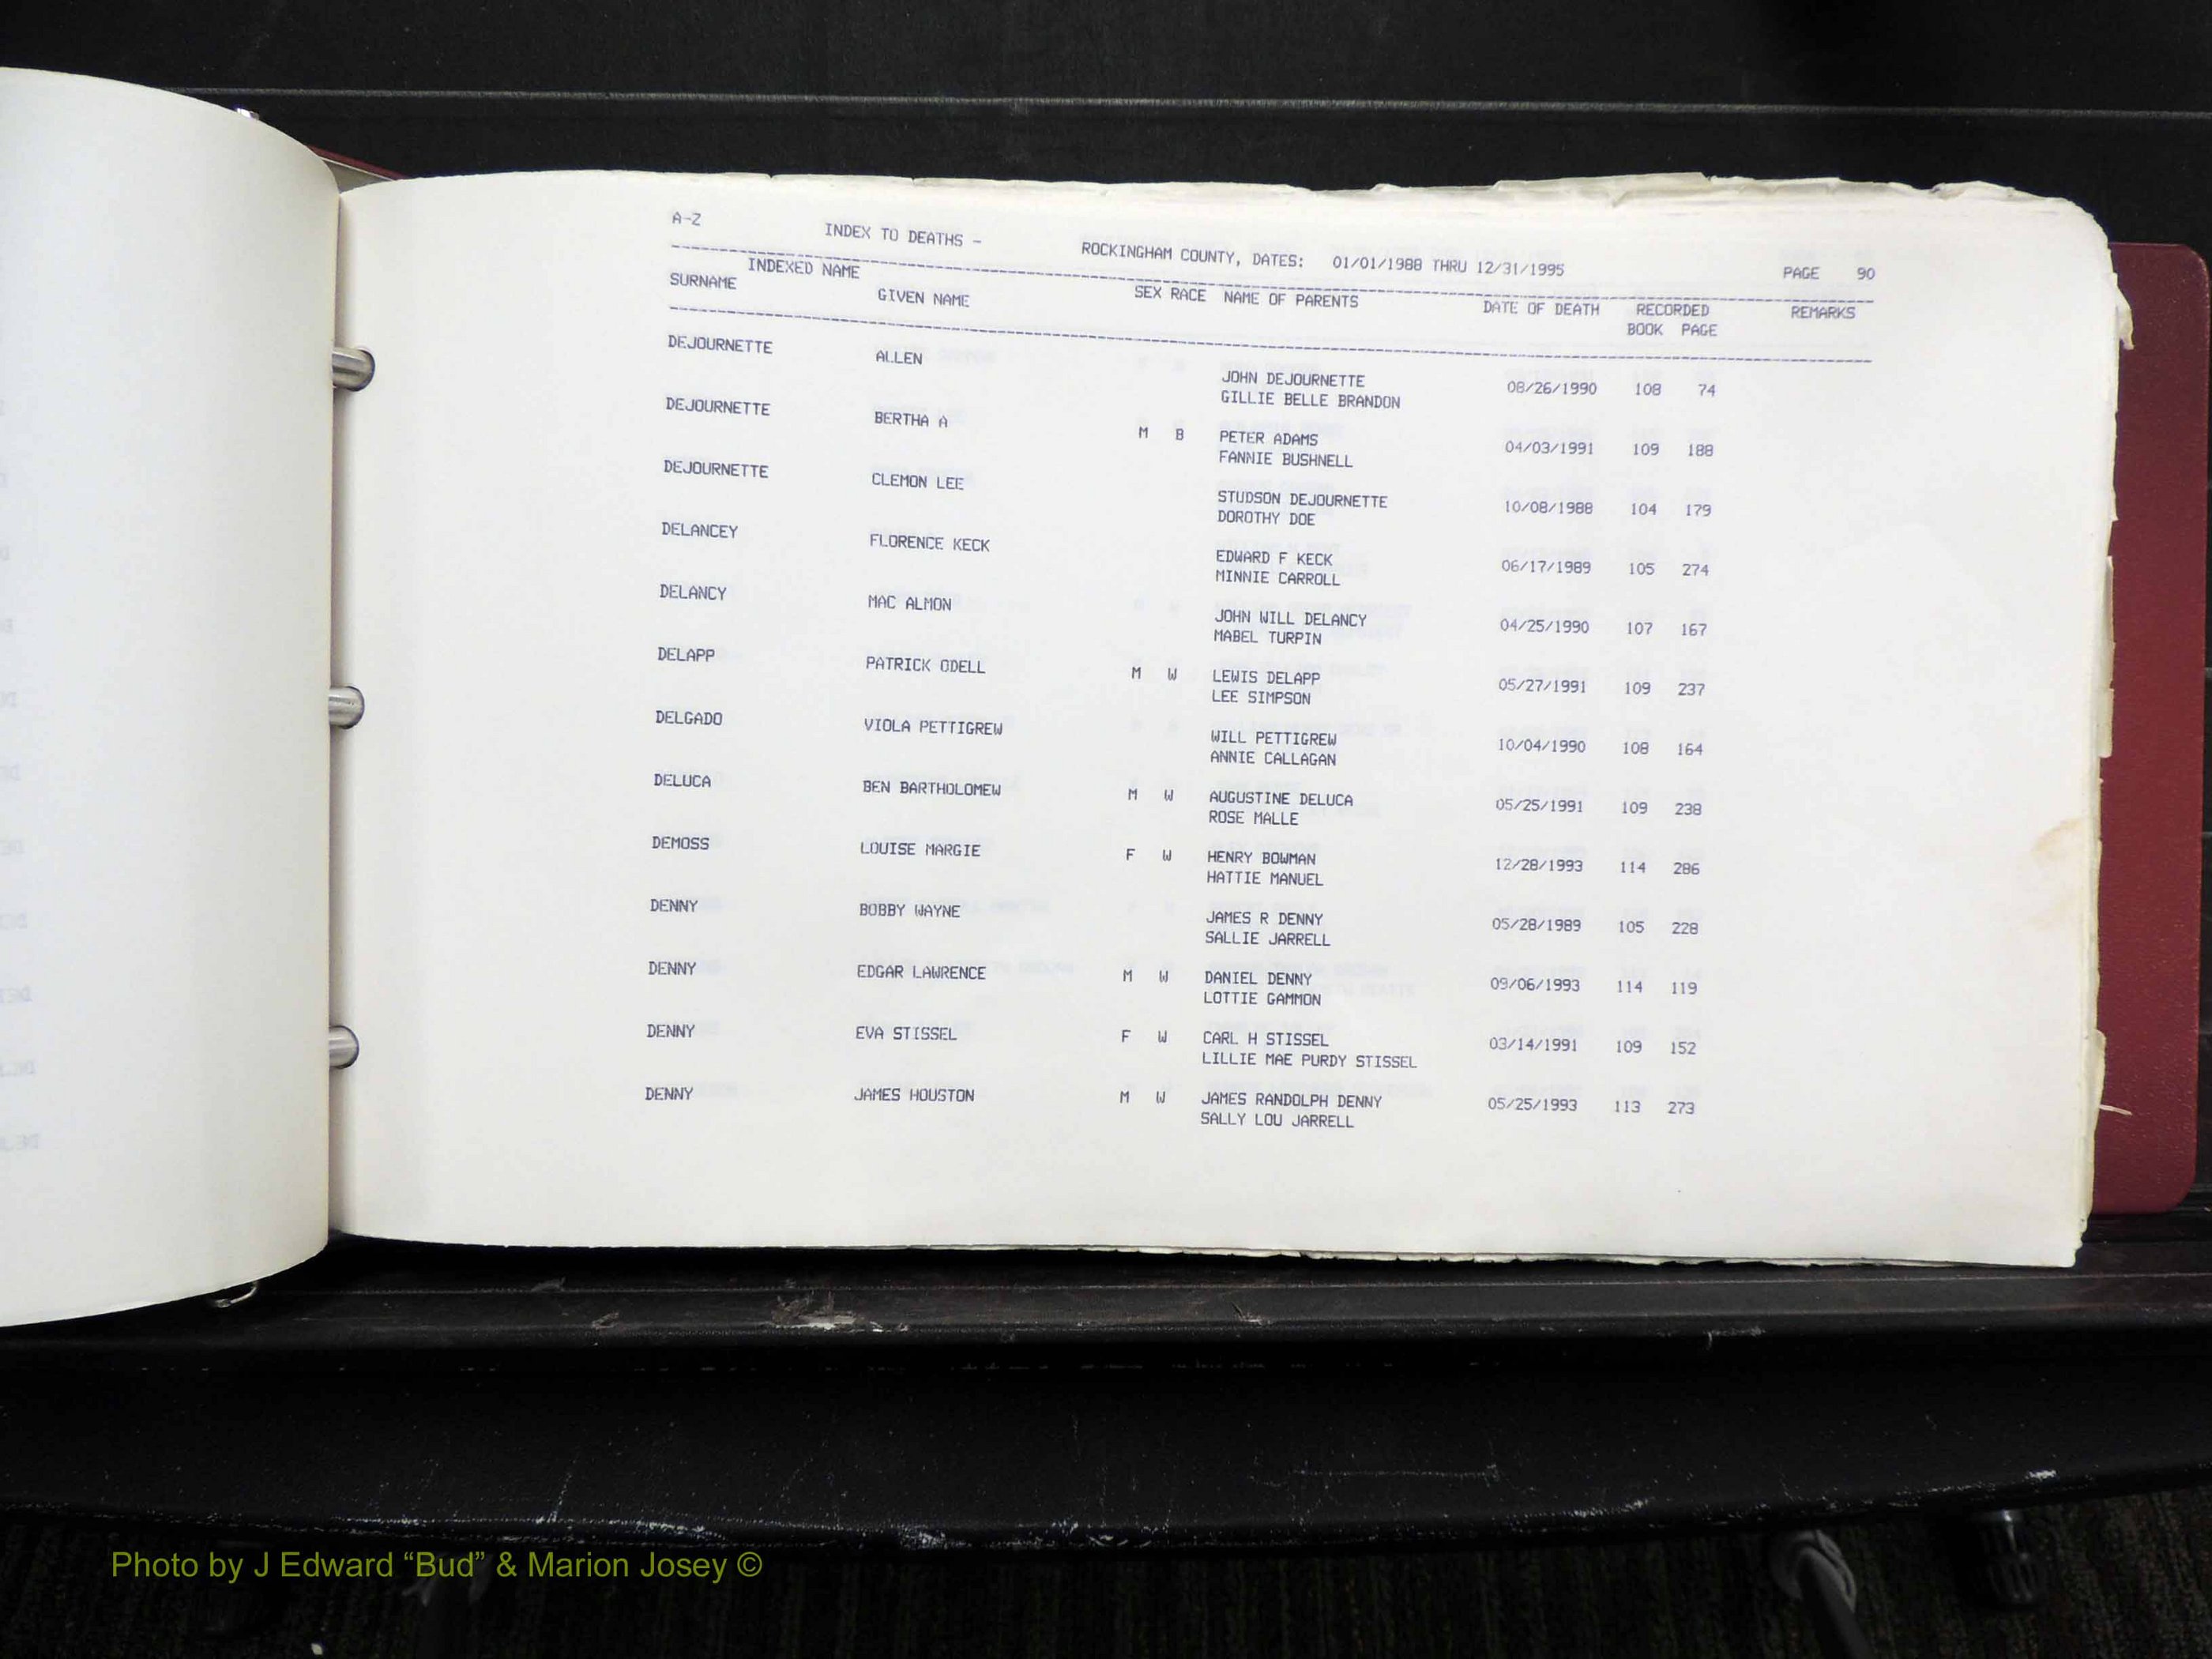 A-Z INDEX TO DEATHS - ROCKINGHAM COUNTY, DATES: 01/01/1988 THRU 12/31/1995 PAGE 90
INDEXED NAME
SURNAME GIVEN NAME SEX RACE NAME OF PARENTS DATE OF DEATH RECORDED REMARKS
BOOK PAGE
DEJOURNETTE ALLEN JOHN DEJOURNETTE 08/26/1990 108 74
GILLIE BELLE BRANDON
DEJOURNETTE BERTHA A M B PETER ADAMS 04/03/1991 109 188
FANNIE BUSHNELL
DEJOURNETTE CLEMON LEE STUDSON DEJOURNETTE 10/08/1988 104 179
DOROTHY DOE
DELANCEY FLORENCE KECK EDWARD F KECK 06/17/1989 105 274
MINNIE CARROLL
DELANCY MAC ALMON JOHN WILL DELANCY 04/25/1990 107 167
MABEL TURPIN
DELAPP PATRICK ODELL M W LEWIS DELAPP 05/27/1991 109 237
LEE SIMPSON
DELGADO VIOLA PETTIGREW WILL PETTIGREW 10/04/1990 108 164
ANNIE CALLAGAN
DELUCA BEN BARTHOLOMEW M W AUGUSTINE DELUCA 05/25/1991 109 238
ROSE MALLE
DEMOSS LOUISE MARGIE F W HENRY BOWMAN 12/28/1993 114 286
HATTIE MANUEL
DENNY BOBBY WAYNE JAMES R DENNY 05/28/1989 105 228
SALLIE JARRELL
DENNY EDGAR LAWRENCE M W DANIEL DENNY 09/06/1993 114 119
LOTTIE GAMMON
DENNY EVA STISSEL F W CARL H STISSEL 03/14/1991 109 152
LILLIE MAE PURDY STISSEL
DENNY JAMES HOUSTON M W JAMES RANDOLPH DENNY 05/25/1993 113 273
SALLY LOU JARRELL
Photo by J Edward “Bud” & Marion Josey ©